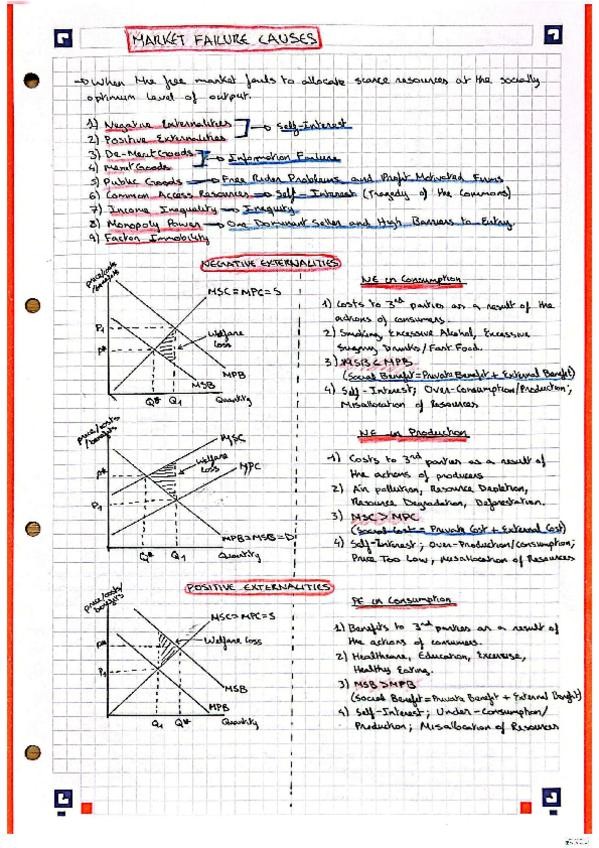 MARKET FAILURE CAUSES
→ When the free market fails to allocate scarce resources at the socially
optimum level of output.
1) Negative Externalities
2) Positive Externalities → Self-Interest
3) De-Merit Goods
4) Merit Goods → Information Failure
5) Public Goods → Free Rider Problems and Profit Motivated Firms
6) Common Access Resources → Self-Interest (Tragedy of the Commons)
7) Income Inequality → Inequity
8) Monopoly Power → One Dominant Seller and High Barriers to Entry
9) Factor Immobility
NEGATIVE EXTERNALITIES
price/costs
/benefits
MSC=MPC=S
P1
P*
Welfare
loss
MPB
MSB
Q* Q1 Quantity
NE in Consumption
1) Costs to 3rd parties as a result of the
actions of consumers.
2) Smoking, Excessive Alcohol, Excessive
Sugary Drinks/Fast Food.
3) MSB < MPB
(Social Benefit = Private Benefit + External Benefit)
4) Self-Interest; Over-Consumption/Production;
Misallocation of Resources
price/costs
/benefits
MSC
P*
Welfare
loss
MPC
P1
MPB=MSB=D
Q* Q1 Quantity
NE in Production
1) Costs to 3rd parties as a result of
the actions of producers
2) Air pollution, Resource Depletion,
Resource Degradation, Deforestation.
3) MSC > MPC
(Social Cost = Private Cost + External Cost)
4) Self-Interest; Over-Production/consumption;
Price Too Low, Misallocation of Resources
POSITIVE EXTERNALITIES
price/costs/
benefits
MSC=MPC=S
P*
Welfare Loss
P1
MSB
MPB
Q1 Q* Quantity
PE in Consumption
1) Benefits to 3rd parties as a result of
the actions of consumers.
2) Healthcare, Education, Exercise,
Healthy Eating.
3) MSB > MPB
(Social Benefit = Private Benefit + External Benefit)
4) Self-Interest; Under-Consumption/
Production; Misallocation of Resources